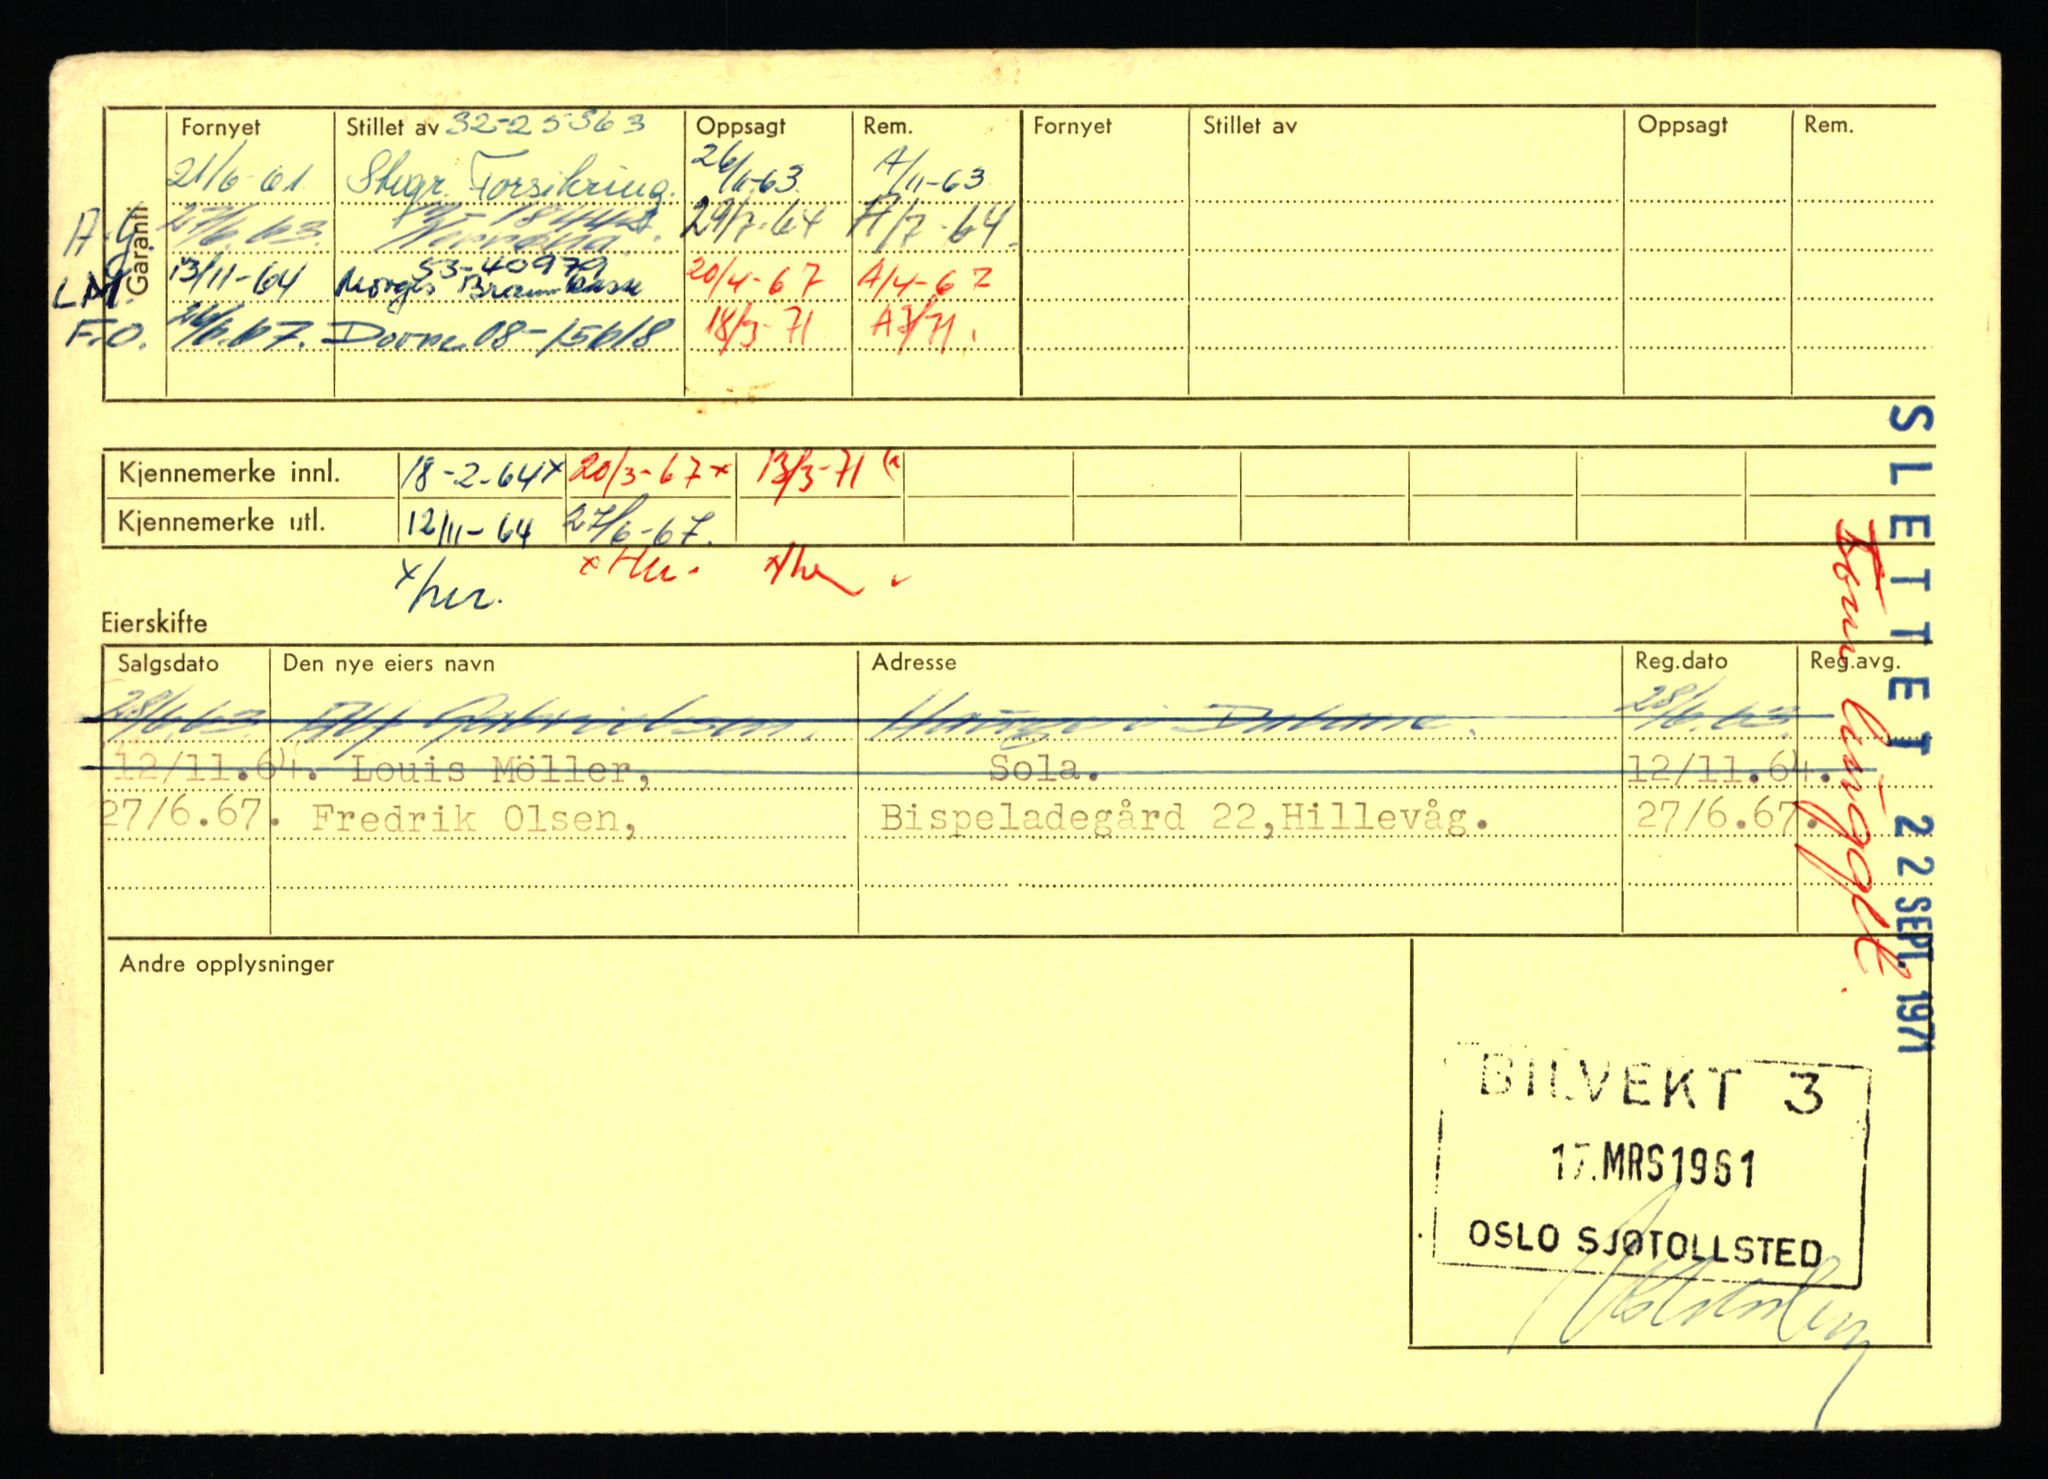 Garanti
Fornyet Stillet av 32-25363 Oppsagt Rem. Fornyet Stillet av Oppsagt Rem.
21/6-61 Forsikring. 26/11-63 A/11-63
A.G. 27/6.63. 29/7-64 A/7-64
53-40979
L.M. 13/11-64 Norges Brannkasse 20/4-67 A/4-67
F.O. 26/6.67. 08-15618 18/3-71
Kjennemerke innl. 18-2-64x 20/3-67x 13/3-71
Kjennemerke utl. 12/11-64 27/6-67.
Eierskifte
Salgsdato Den nye eiers navn Adresse Reg.dato Reg.avg.
28/6.63. Alf Gabrielsen. Hauge i Dalane. 28/6.63.
12/11.64. Louis Möller, Sola. 12/11.64.
27/6.67. Fredrik Olsen, Bispeladegård 22,Hillevåg. 27/6.67.
Andre opplysninger
SLETTET 22 SEPT. 1971
BILVEKT 3
17.MRS1961
OSLO SJØTOLLSTED